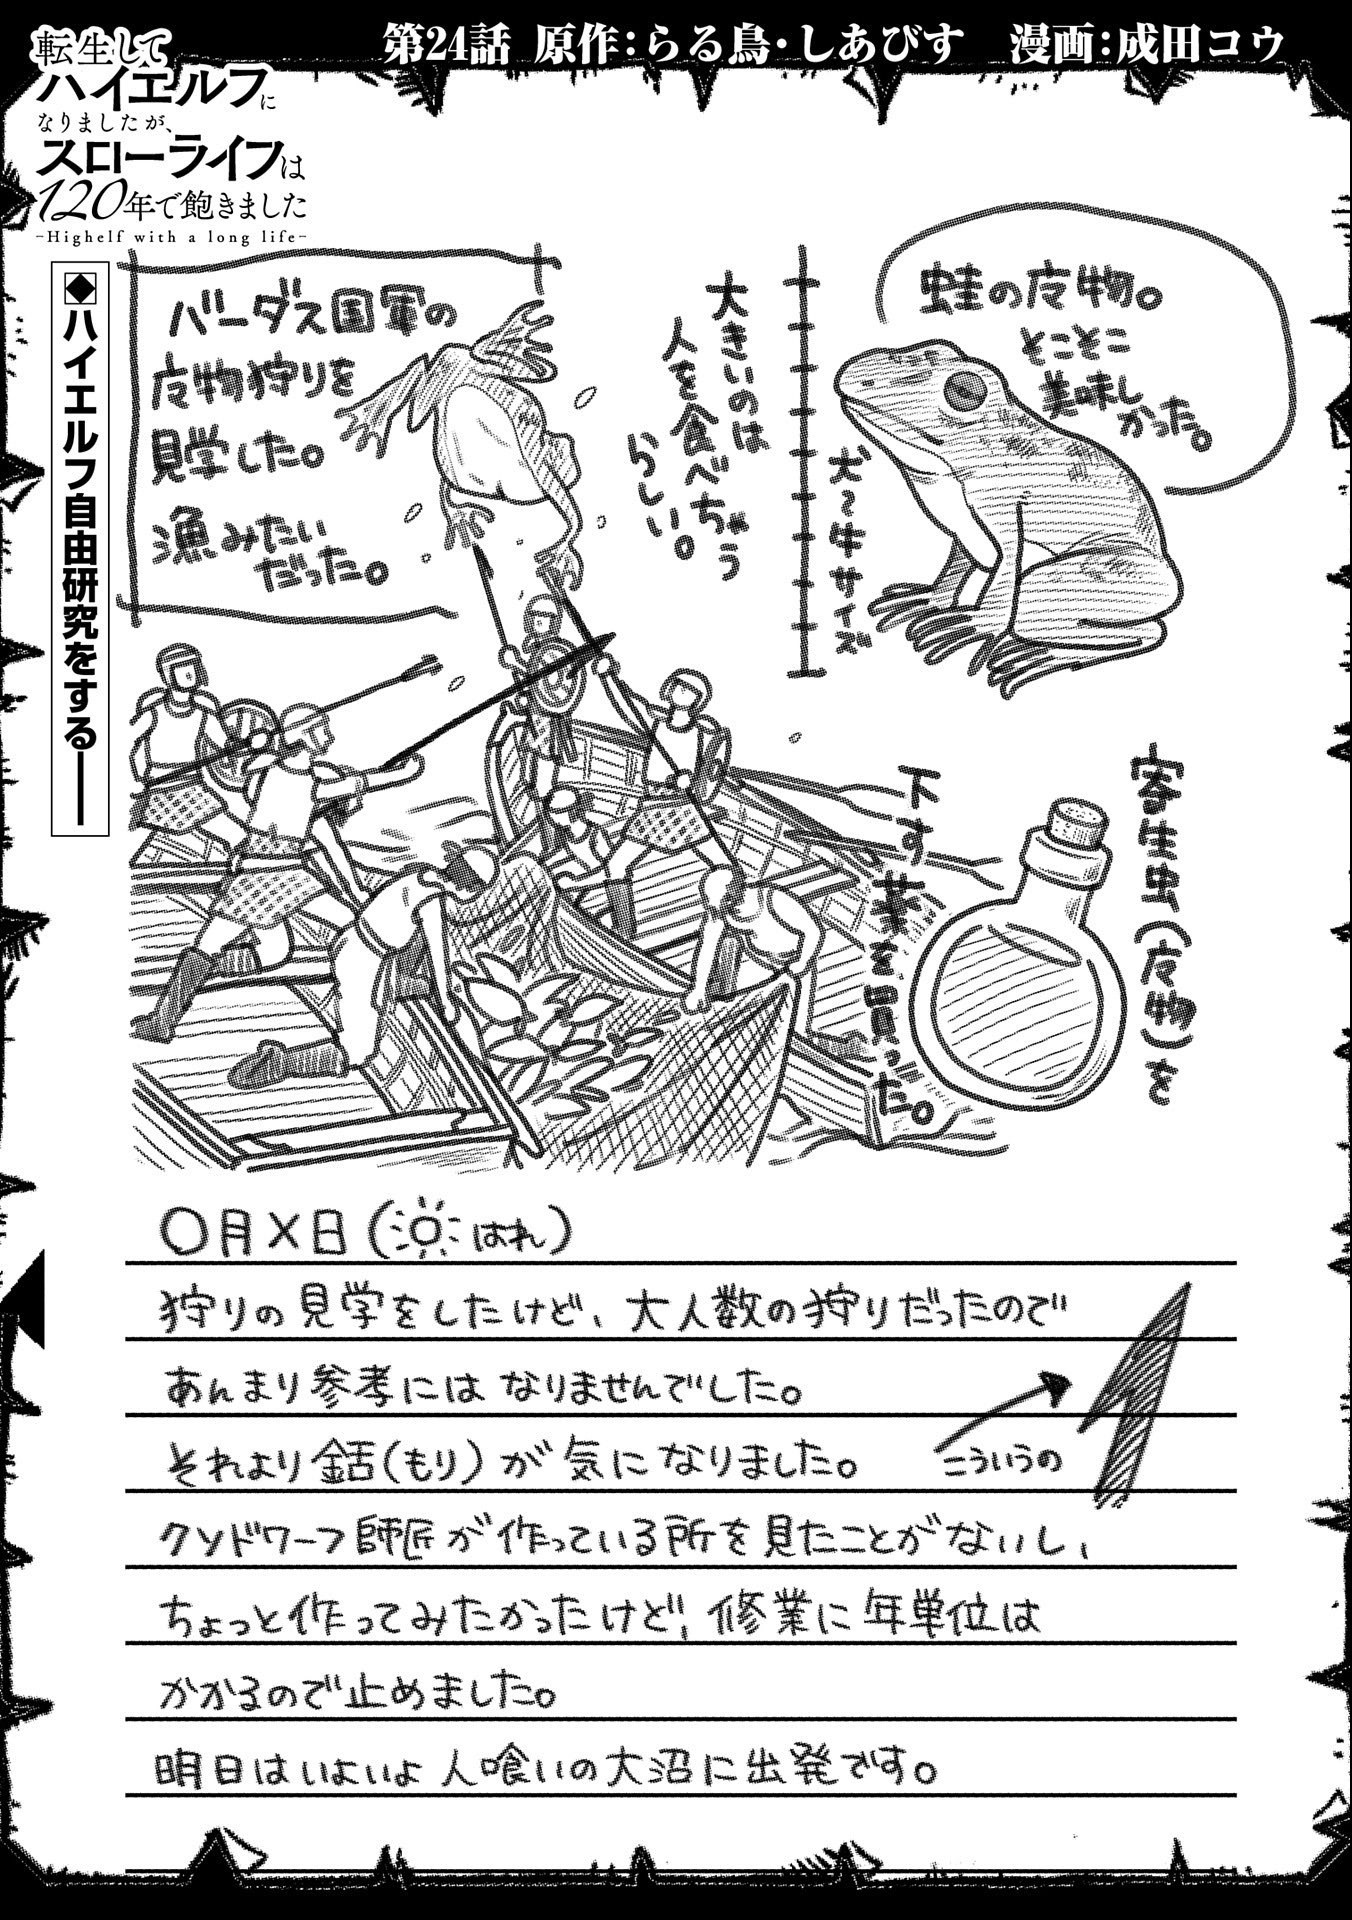 第24話 原作：らる鳥・しあびす 漫画：成田コウ
転生して
ハイエルフに
なりましたが、
スローライフは
120年で飽きました
-Highelf with a long life-
◆ハイエルフ自由研究をする――
蛙の広物。
とこととこ
美味し
かった。
犬〜牛サイズ
大きいのは
人を食べちゃう
らしい。
バーダス国軍の
広物狩りを
見学した。
漁みたい
だった。
寄生虫(広物)を
下す薬を買った。
〇月×日(はれ)
狩りの見学をしたけど、大人数の狩りだったので
あんまり参考にはなりませんでした。
それより銛(もり)が気になりました。
こういうの
クソドワーフ師匠が作っている所を見たことがないし、
ちょっと作ってみたかったけど、修業に年単位は
かかるので止めました。
明日はいよいよ人喰いの大沼に出発です。